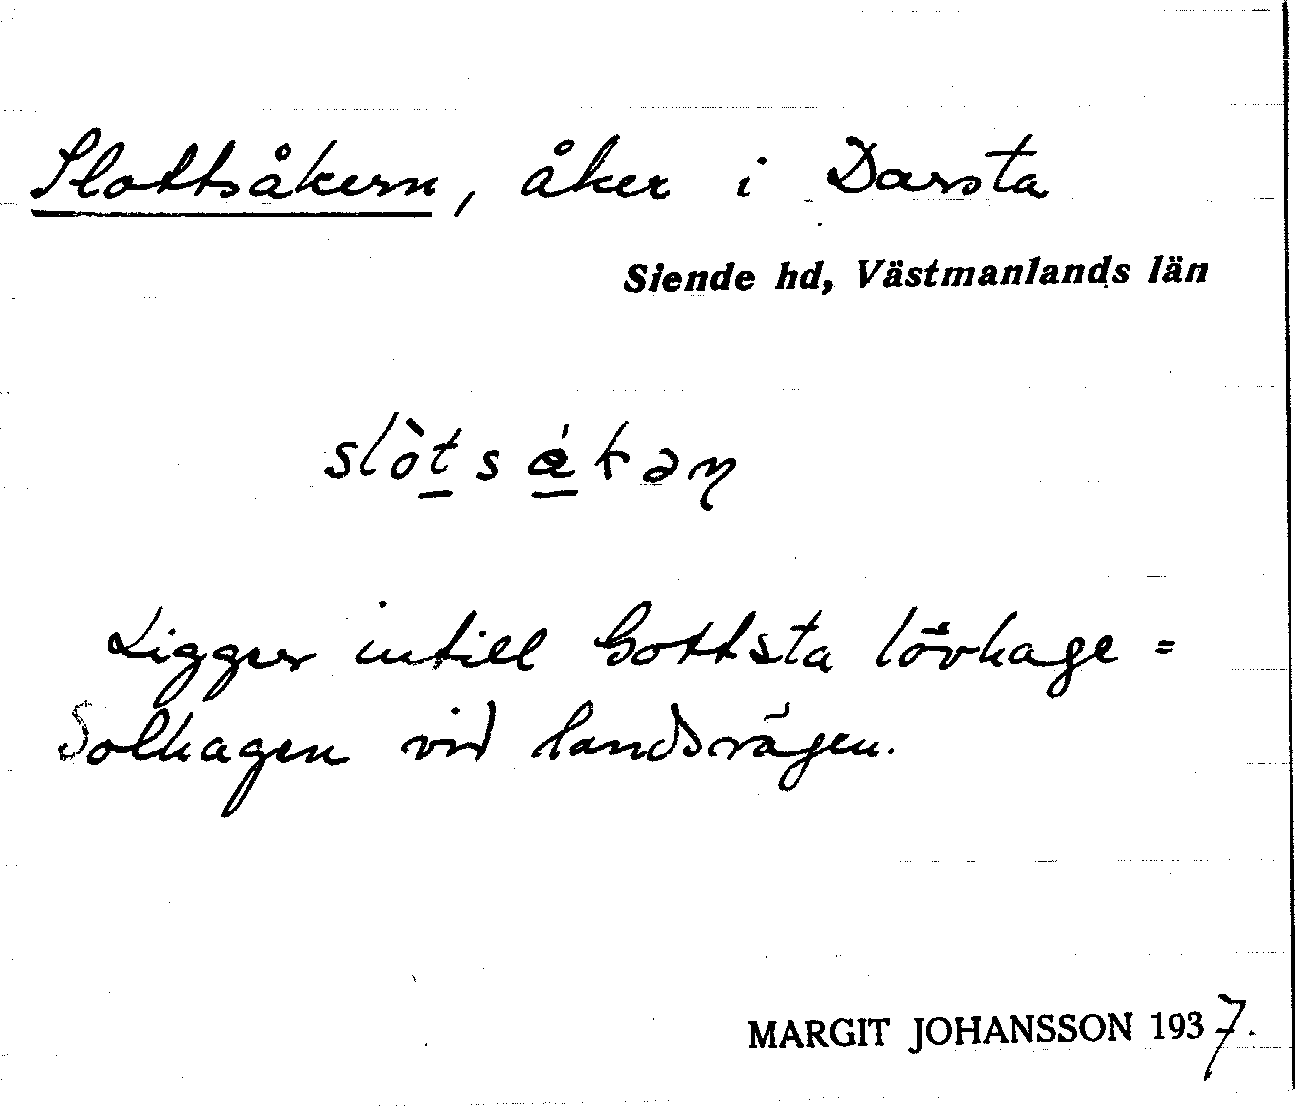 Slottsåkern, åker i Darsta
Siende hd, Västmanlands län
slòtsákəṇ
Ligger intill Gottsta lövhage =
Solhagen vid landsvägen.
MARGIT JOHANSSON 1937.